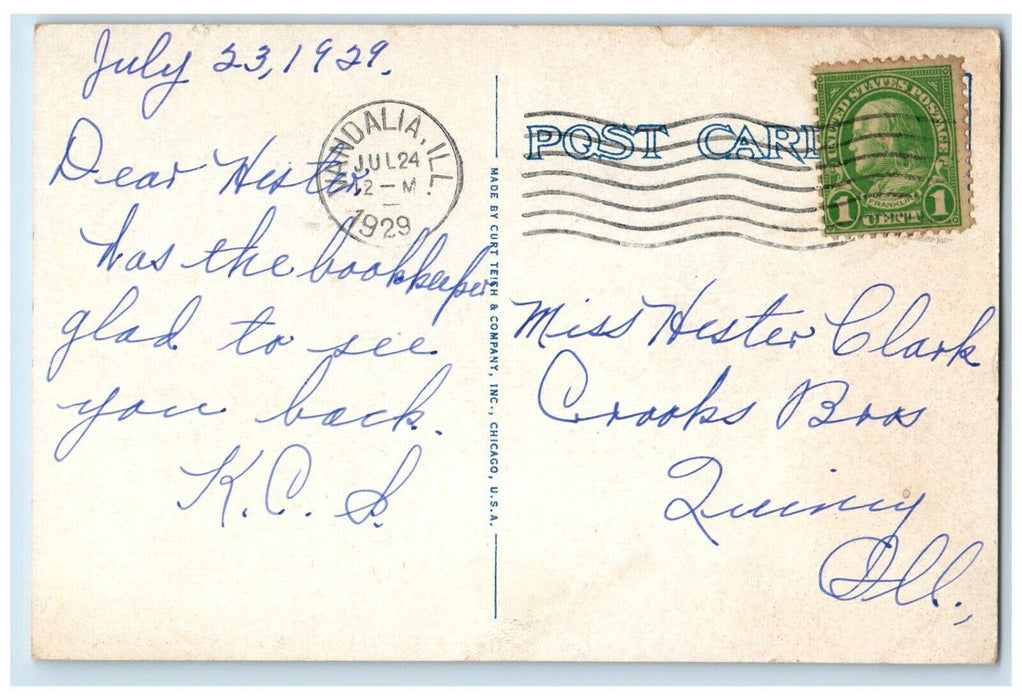 July 23, 1929.
Dear Hester,
has the bookkeeper
glad to see
you back.
K. C. S.
VANDALIA, ILL.
JUL 24
12 - M
1929
MADE BY CURT TEICH & COMPANY, INC., CHICAGO, U.S.A.
POST CARD
UNITED STATES POSTAGE
FRANKLIN
1 CENT 1
Miss Hester Clark
Crooks Bros
Quincy
Ill.,